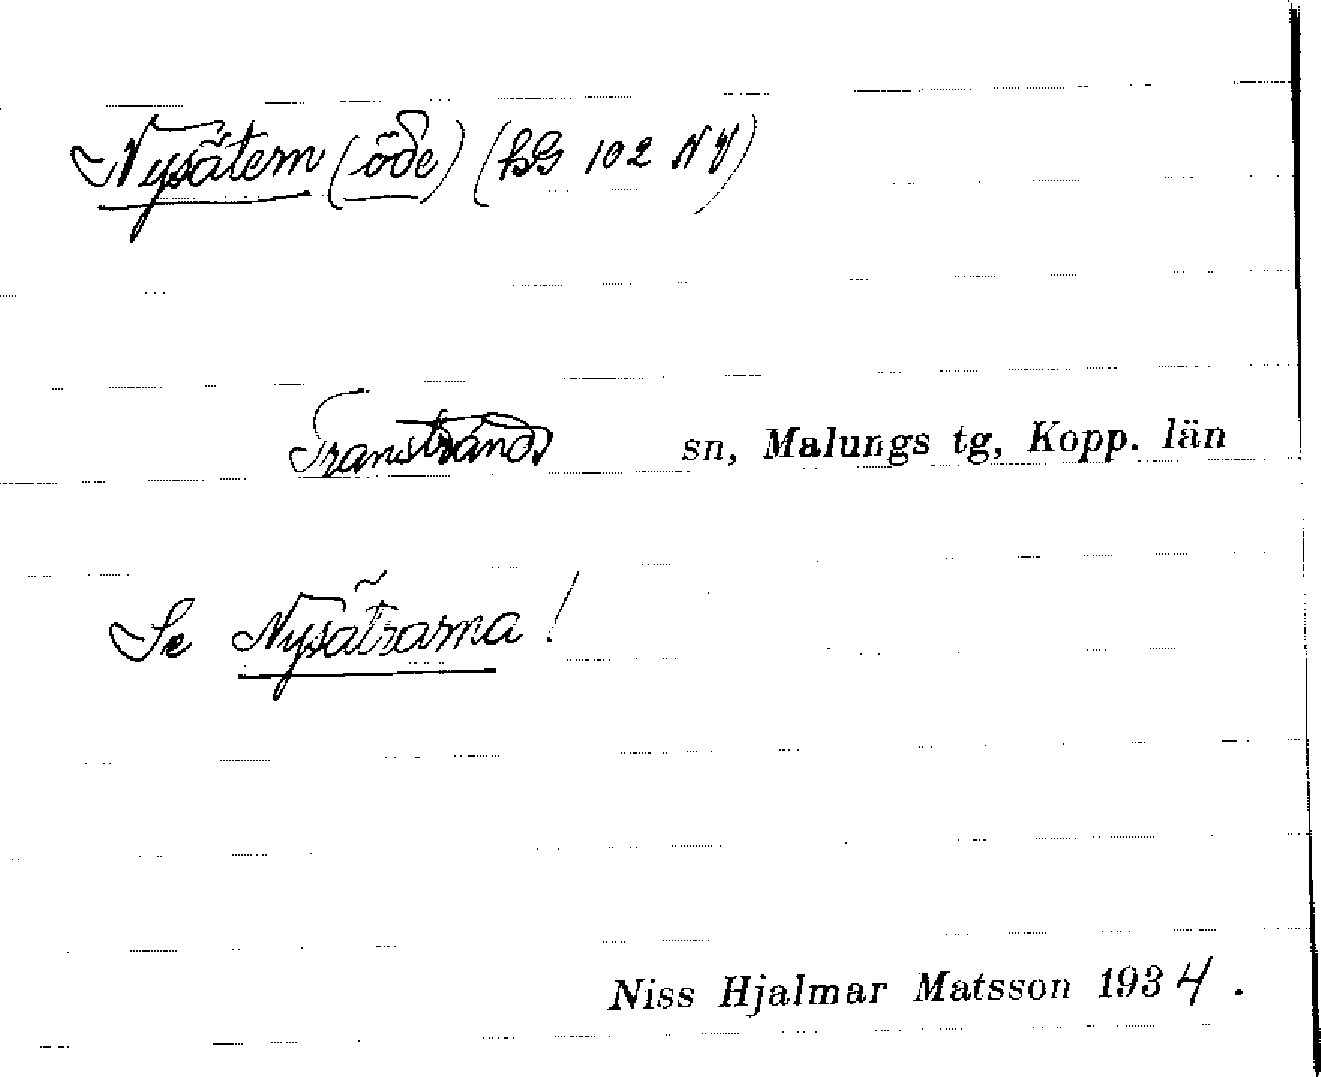 Nysätern (öde) (bG 102 NV)
Transtrands sn, Malungs tg, Kopp. län
Se Nysätrarna!
Niss Hjalmar Matsson 1934.